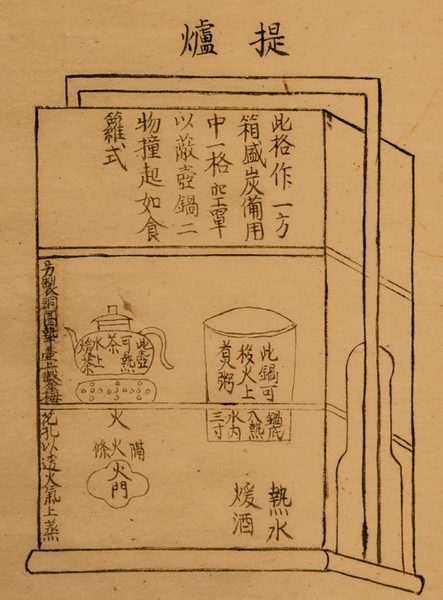 提爐
此格作一方
箱盛炭備用
中一格空罩
以蔽壺鍋二
物撞起如食
籮式
此鍋可
後火上
煮粥
鍋底
入熱
水內
三寸
此壺
可熱
茶
水上
火
隔火條
火門
熱水
煖酒
另製銅圈墊壺上鑿梅花孔以透火氣上蒸